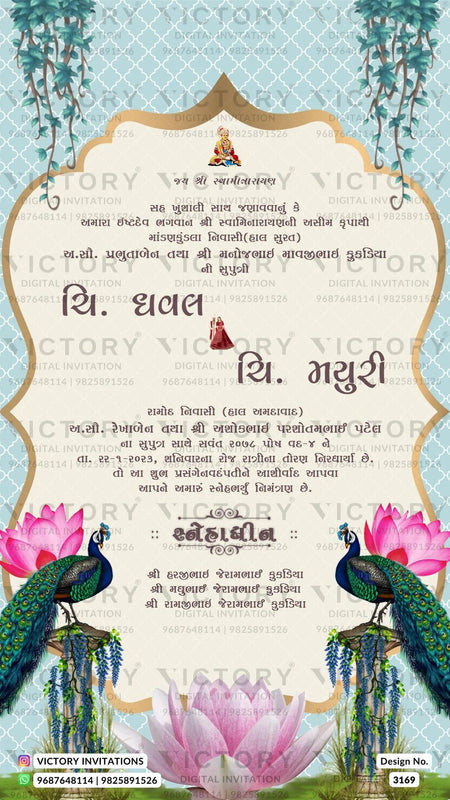 જય શ્રી સ્વામીનારાયણ
સહ ખુશાલી સાથ જણાવવાનું કે
અમારા ઈષ્ટદેવ ભગવાન શ્રી સ્વામિનારાયણની અસીમ કૃપાથી
માંડણકુંડલા નિવાસી(હાલ સુરત)
અ.સૌ. પ્રભુતાબેન તથા શ્રી મનોજભાઇ માવજીભાઇ કુકડિયા
ની સુપુત્રી
ચિ. ધવલ
ચિ. મયુરી
રામોદ નિવાસી (હાલ અમદાવાદ)
અ.સૌ. રેખાબેન તથા શ્રી અશોકભાઇ પરશોતમભાઈ પટેલ
ના સુપુત્ર સાથે સવંત ૨૦૭૮ પોષ વદ-૪ ને
તા. ૨૨-૧-૨૦૨૩, શનિવારના રોજ રાત્રીના તોરણ નિરધાર્યા છે.
તો આ શુભ પ્રસંગેનવદંપતીને આશીર્વાદ આપવા
આપને અમારું સ્નેહભર્યું નિમંત્રણ છે.
:: સ્નેહાધીન ::
શ્રી હરજીભાઈ જેરામભાઈ કુકડિયા
શ્રી મધુભાઈ જેરામભાઈ કુકડિયા
શ્રી રામજીભાઈ જેરામભાઈ કુકડિયા
VICTORY INVITATIONS
9687648114 | 9825891526
Design No.
3169